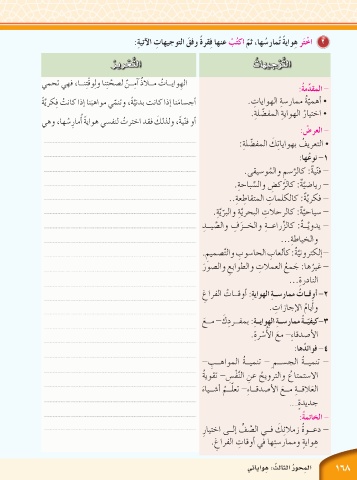 ٢ اخْتَرْ هِوايةً تُمارسُها، ثمّ اكْتُبْ عنها فِقرةً وفقَ التوجيهاتِ الآتيةِ:
التَّوْجيهاتُ
– المقدّمةُ:
• أهمّيّةُ ممارسةِ الهواياتِ.
• اختيارُ الهوايةِ المفضّلةِ.
– العرضُ:
• التعريفُ بهوايتِكَ المفضّلةِ:
١– نوعُها:
– فنّيّةٌ: كالرّسمِ والمُوسيقى.
– رياضيّةٌ: كالرّكضِ والسّباحةِ.
– فكريّةٌ: كالكلماتِ المتقاطعةِ..
– سياحيّةٌ: كالرحلاتِ البحريّةِ والبرّيّةِ.
– يدويّةٌ: كالزّراعةِ والخَزفِ والصّيدِ
والخياطةِ...
– إلكترونيّةٌ: كألعابِ الحاسوبِ والتّصميمِ.
– غيرُها: جَمعُ العملاتِ والطوابعِ والصورِ
النادرةِ...
٢– أوقاتُ ممارسةِ الهوايةِ: أوقاتُ الفراغِ
وأيامُ الإجازاتِ.
٣– كيفيّةُ ممارسةِ الهوايةِ: بمفردِكَ – معَ
الأصدقاءِ – معَ الأسرةِ.
٤– فوائدُها:
– تنميةُ الجسمِ – تنميةُ المواهبِ –
الاستمتاعُ والترويحُ عنِ النَّفْسِ – تقويةُ
العَلاقةِ معَ الأصدقاءِ – تعلّمُ أشياءَ
جديدةٍ...
– الخاتمةُ:
– دعوةُ زملائِكَ في الصّفِّ إلى اختيارِ
هوايةٍ وممارستِها في أوقاتِ الفراغِ.
التَّحْريرُ
الهواياتُ ملاذٌ آمنٌ لصحّتِنا ولوقتِنا، فهي تحمي
أجسامَنا إذا كانت بدنيّةً، وتنمّي مواهبَنا إذا كانتْ فِكريّةً
أو فنّيةً، ولذلكَ فقد اخترتُ لنفسي هوايةً أمارسُها، وهي
١٦٨ المحورُ الثالثُ: هواياتي